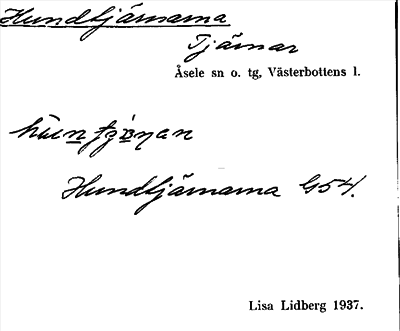 Hundtjärnarna
Tjärnar
Åsele sn o. tg, Västerbottens l.
Hundtjärnarna G54.
Lisa Lidberg 1937.